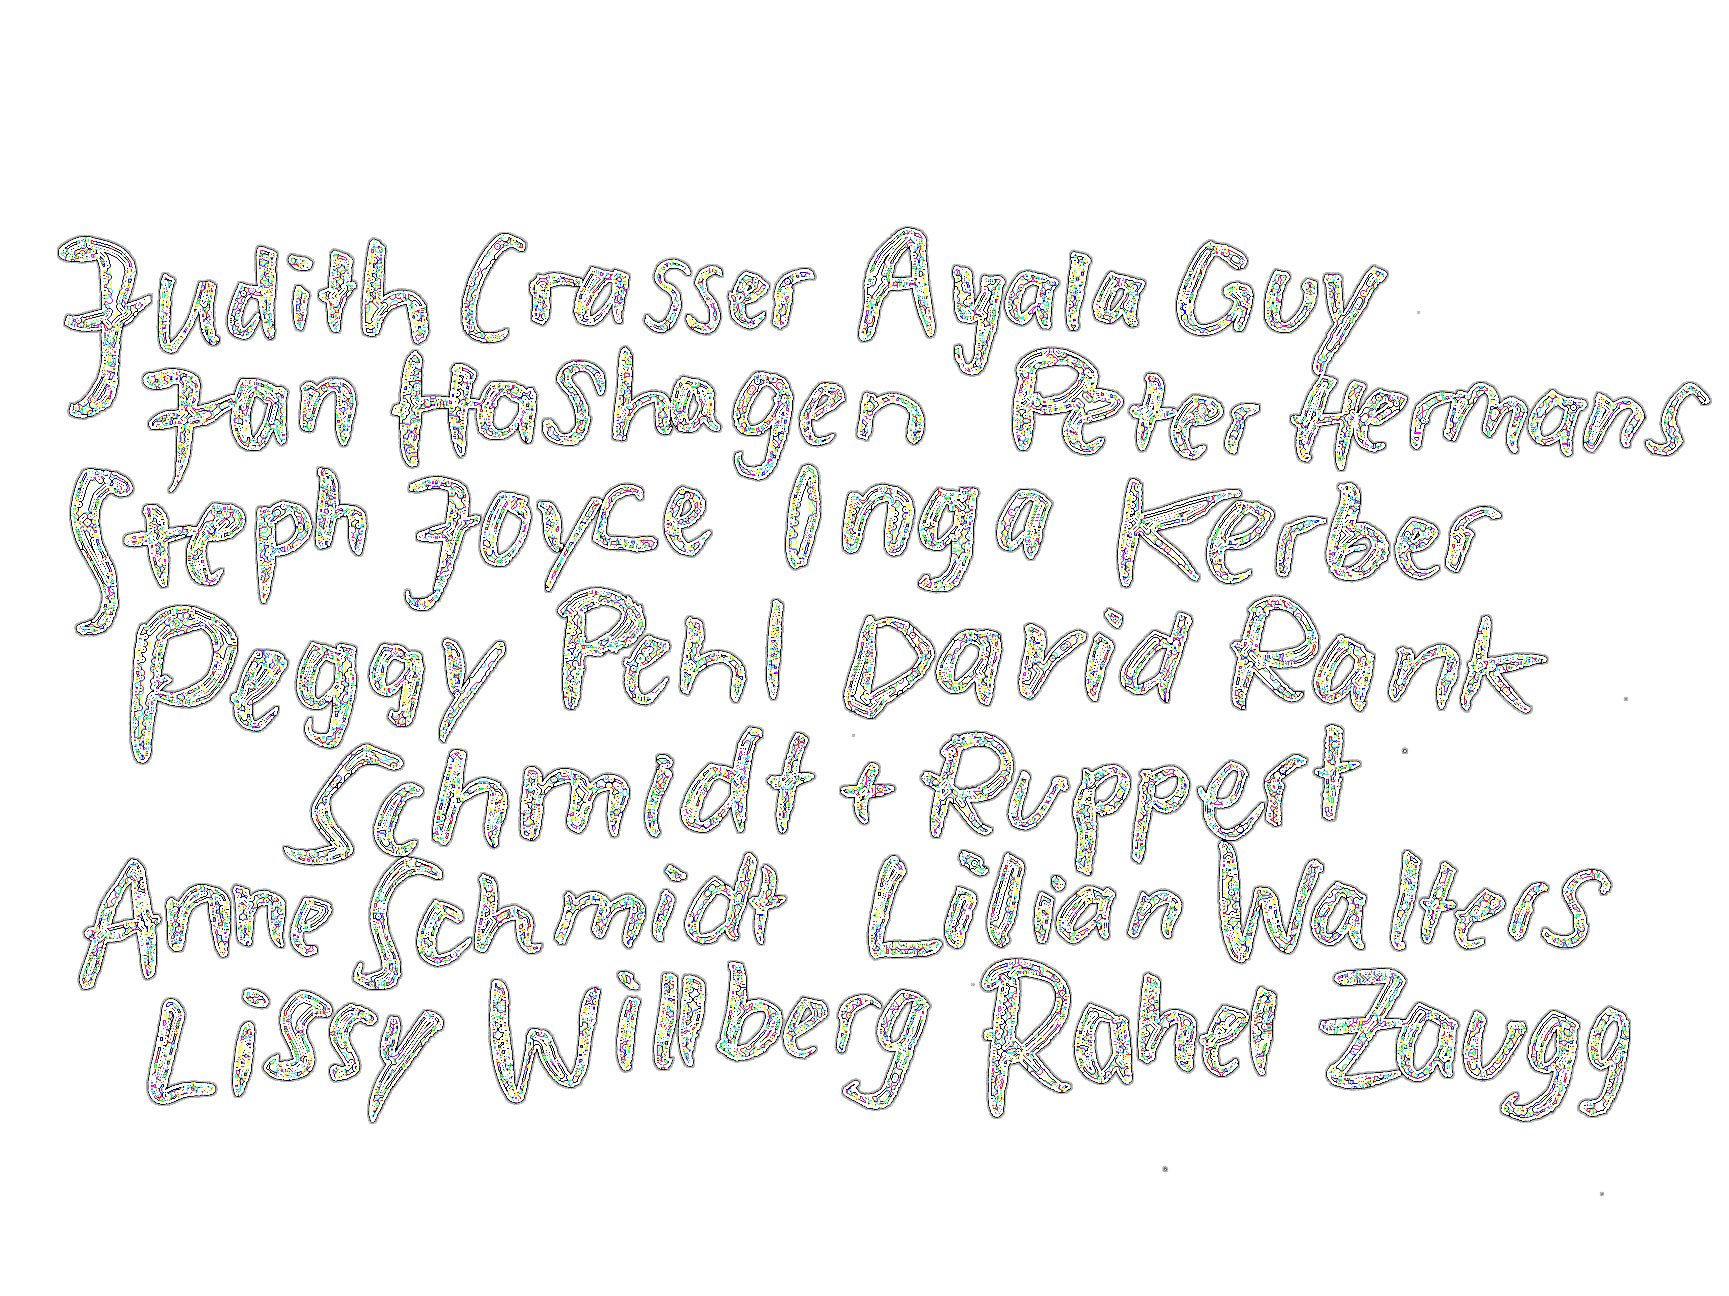 Judith Crasser Ayala Guy
Jan Hashagen Peter Hermans
Steph Joyce Inga Kerber
Peggy Pehl David Rank
Schmidt + Ruppert
Anne Schmidt Lilian Walters
Lissy Willberg Rahel Zaugg